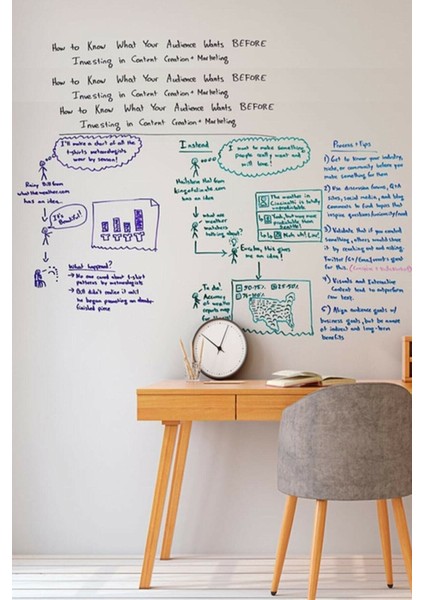 How to Know What Your Audience Wants BEFORE
Investing in Content Creation + Marketing
How to Know What Your Audience Wants BEFORE
Investing in Content Creation + Marketing
How to Know What Your Audience Wants BEFORE
Investing in Content Creation + Marketing
I'll make a chart of all the
t-shirts meteorologists
wear by season!
Rainy Bill from
whattheweather.com
has an idea...
It's Beautiful!
What happened?
→ No one cared about t-shirt
patterns by meteorologists
→ Bill didn't realize it until
he began promoting an
finished piece
Instead
I want to make something
people really want and
will love!
Hailstone Hal from
has an idea...
what are
weather
watchers
talking about?
The weather in
Cincinnati is totally
unpredictable
than Seattle!
Eureka, this gives
me an idea!
Ta da!
Accuracy
of weather
reports map
50-75%
25-50%
76-100%
Process + Tips
1) Get to know your industry,
niche, or community before you
make something for them
2) Use discussion forums, Q&A
sites, social media, and blog
comments to find topics that
inspire questions/curiosity/need
3) Validate that if you created
something, others would share
it by reaching out and asking.
Twitter/G+/Email/Events great
for this.
4) Visuals and Interactive
Content tend to outperform
raw text.
5) Align audience goals w/
business goals, but be aware
of indirect and long-term
benefits